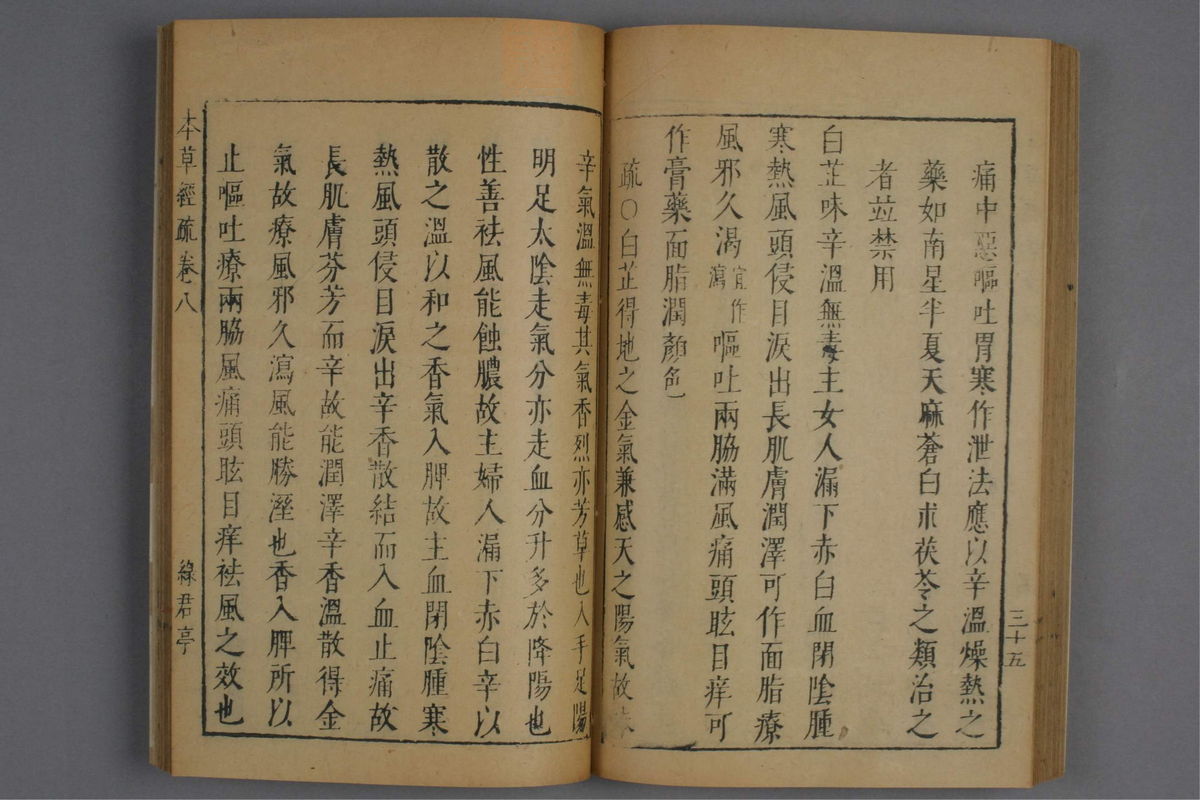 痛中惡嘔吐胃寒作泄法應以辛溫燥熱之
藥如南星半夏天麻蒼白朮茯苓之類治之
者竝禁用
白芷味辛溫無毒主女人漏下赤白血閉陰腫
寒熱風頭侵目淚出長肌膚潤澤可作面脂療
風邪久渴宜作瀉嘔吐兩脇滿風痛頭眩目痒可
作膏藥面脂潤顏色
疏○白芷得地之金氣兼感天之陽氣故味
辛氣溫無毒其氣香烈亦芳草也入手足陽
明足太陰走氣分亦走血分升多於降陽也
性善祛風能蝕膿故主婦人漏下赤白辛以
散之溫以和之香氣入脾故主血閉陰腫寒
熱風頭侵目淚出辛香散結而入血止痛故
長肌膚芬芳而辛故能潤澤辛香溫散得金
氣故療風邪久瀉風能勝溼也香入脾所以
止嘔吐療兩脇風痛頭眩目痒祛風之效也
三十五
本草經疏卷八
綠君亭